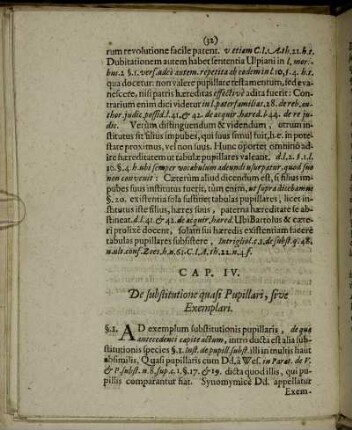 (32)
rum revolutione facile patent. v etiam C. l. A. th. 22. h. t.
Dubitationem autem habet sententia Ulpiani in l. mori-
bus. 2 §. 1. vers. adeo autem. repetita ab eodem in l. 10. §. 4. h. t.
qua docetur: non valere pupillare testamentum, sed eva-
nescere, nisi patris hæreditas effectivè adita fuerit: Con-
trarium enim dici videtur in l. paterfamilias. 28. de reb. au-
thor. judic. possid. l. 41. & 42. de acquir. hæred. l. 44. de re ju-
dic. Verùm distinguendum & videndum, utrum in-
stitutus sit filius impubes, qui suus simul fuit, h.e. in pote-
state proximus, vel non suus. Hunc oportet omninò ad-
ire hæreditatem ut tabulæ pupillares valeant, d. l. 2. §. 1. l.
10. §. 4. h. ubi semper vocabulum adeundi usurpatur, quod suo
non convenit: Cæterum aliud dicendum est, si filius im-
pubes suus institutus fuerit, tùm enim, ut supra dicebamus
§. 20. existentia sola sustinet tabulas pupillares, licet in-
stitutus iste filius, hæres suus, paterna hæreditate se ab-
stineat. d. l. 41. & 42. de acquir. hæred. Ubi Bartolus & cæte-
ri prolixè docent, solam sui hæredis existentiam facere
tabulas pupillares subsistere, Intrigliol. c. 3. de subst. q. 48.
n. ult. conf. Zoes. h. n. 61. C. l. A. th. 22. n. 4. f.
CAP. IV.
De substitutione quasi Pupillari, sive
Exemplari.
§. 1. AD exemplum substitutionis pupillaris, de qua
antecedenti capite actum, intro ducta est alia sub-
stitutionis species §. 1. Inst. de pupill. subst. illi in multis haut
absimilis, Quasi pupillaris cum Dd. à Wes. in Parat. de V.
& P. subst. n. 8. sup. c. 1. §. 17. & 19. dicta quod illi, qui pu-
pillis comparantur fiat. Synonymicè Dd. appellatur
Exem-